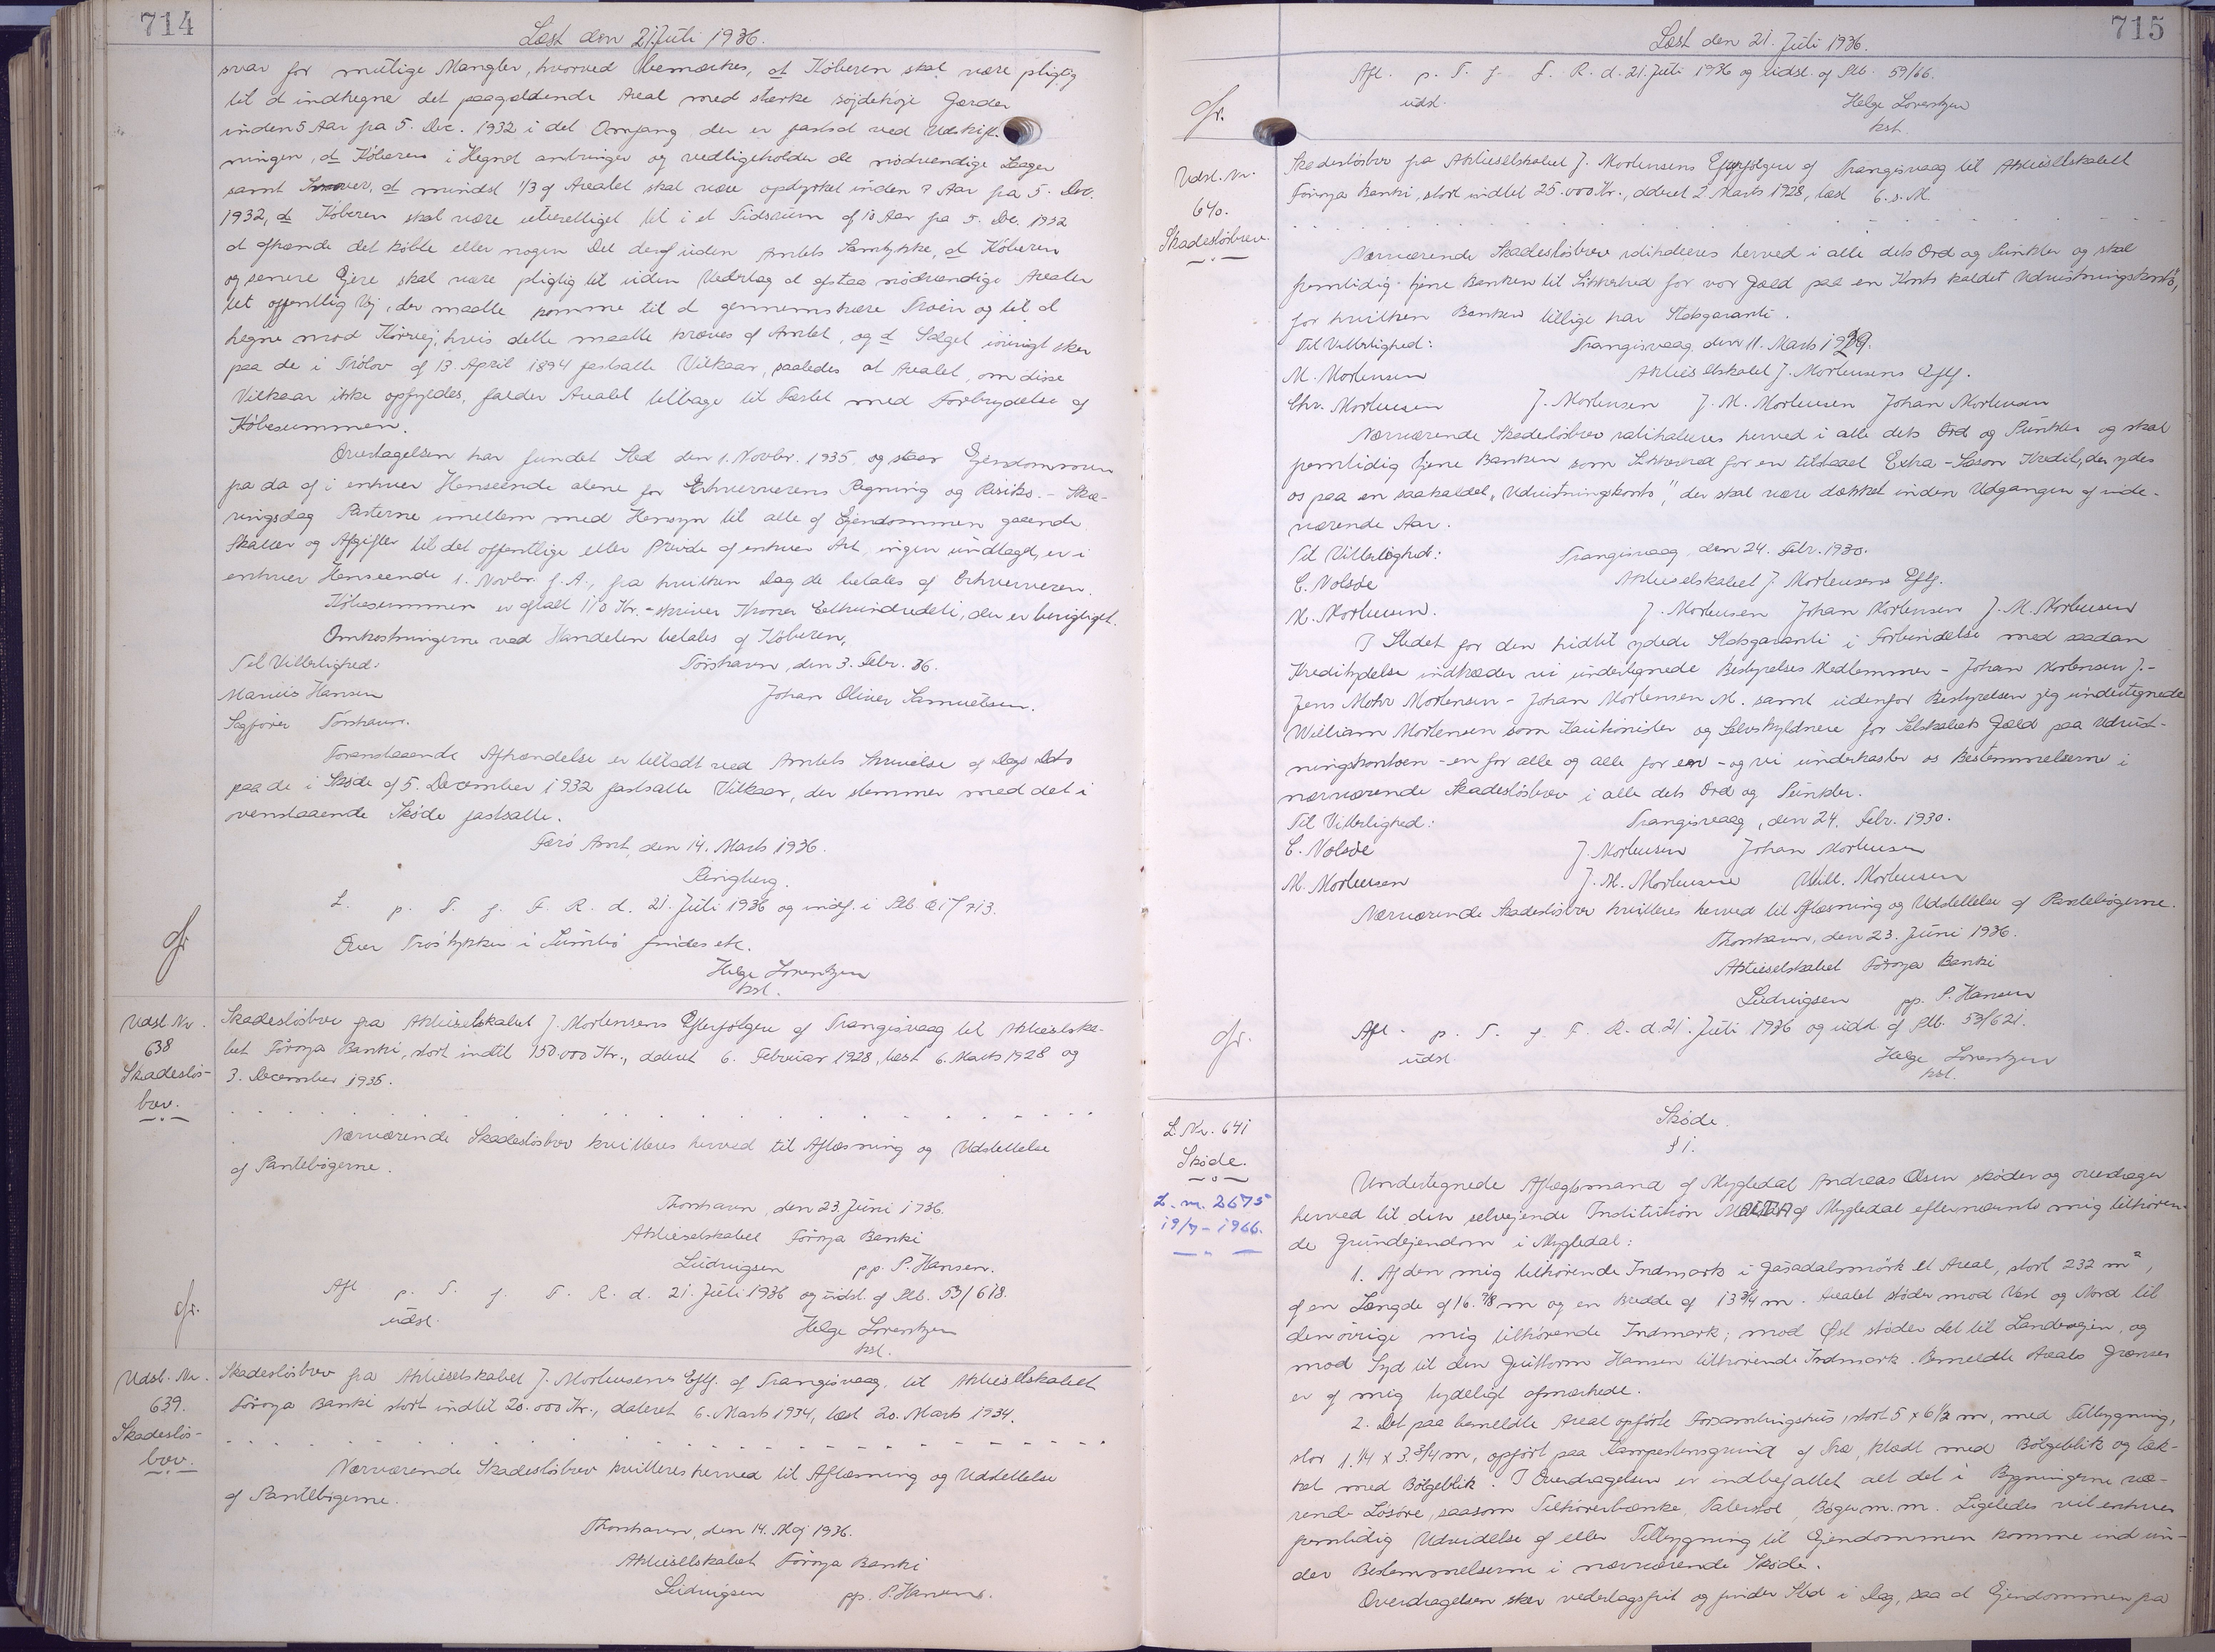 714
Læst den 21. Juli 1936.
svar for mulige Mangler, hvorved bemærkes, at Køberen skal være pligtig
til at indhegne det paagældende Areal med stærke højdehøje Gærder
inden 5 Aar fra 5. Dec. 1932 i det Omfang, der er fastsat ved Udskift-
ningen, at Køberen i Hegnet anbringer og vedligeholder de nødvendige Laager
samt, at mindst 1/3 af Arealet skal være opdyrket inden Aar fra 5. Dec.
1932, at Køberen skal være uberettiget til i et Tidsrum af 10 Aar fra 5. Dec. 1932
at afhænde det købte eller nogen Del deraf uden Amtets Samtykke, at Køberen
og senere Ejere skal være pligtig til uden Vederlag at afstaa nødvendige Arealer
til offentlig Vej, der maatte komme til at gennemskære Trøen og til at
hegne mod Kørevej, hvis dette maatte kræves af Amtet, og at Salget iøvrigt sker
paa de i Trølov af 13. April 1894 fastsatte Vilkaar, saaledes at Arealet, om disse
Vilkaar ikke opfyldes, falder Arealet tilbage til Fæstet med Forbrydelse af
Købesummen.
Overtagelsen har fundet Sted den 1. Novbr. 1935. og staar Ejendommen
fra da af i enhver Henseende alene for Erhververens Regning og Risiko. - Skæ-
ringsdag Parterne imellem med Hensyn til alle af Ejendommen gaaende
Skatter og Afgifter til det offentlige eller Private af enhver Art, ingen undtaget, er i
enhver Henseende 1. Novbr. f. A., fra hvilken Dag de betales af Erhververen.
Købesummen er aftalt 110 Kr. - skriver Kroner Eethundredeti, der er berigtiget.
Omkostningerne ved Handelen betales af Køberen.
Til Vitterlighed:
Tórshavn, den 3. Febr. 36.
Marius Hansen
Johan Oliver Samuelsen.
Sagfører Tórshavn.
Foranstaaende Afhændelse er tilladt ved Amtets Skrivelse af Dags Dato
paa de i Skøde af 5. December 1932 fastsatte Vilkaar, der stemmer med det i
ovenstaaende Skøde fastsatte.
Færø Amt, den 14. Marts 1936.
Ringberg.
L. p. T. f. F. R. d. 21. Juli 1936 og indf. i Ptb.
Over Trøstykker i Sumbø findes etc.
Helge Lorentzen
kst.
Udsl. Nr.
638
Skadesløs-
brev.
Skadesløsbrev fra Aktieselskabet J. Mortensens Efterfølgere af Trangisvaag til Aktieselska-
bet Føroya Banki, stort indtil 150.000 Kr., dateret 6. Februar 1928, læst 6. Marts 1928 og
3. December 1935.
Nærværende Skadesløsbrev kvitteres herved til Aflæsning og Udslettelse
af Pantebøgerne.
Thorshavn, den 23. Juni 1936.
Aktieselskabet Føroya Banki
Ludvigsen pp. P. Hansen.
Afl. p. T. f. F. R. d. 21. Juli 1936 og udsl. af Ptb. 53/618.
udsl.
Helge Lorentzen
kst.
Udsl. Nr.
639.
Skadesløs-
brev.
Skadesløsbrev fra Aktieselskabet J. Mortensens Eftf. af Trangisvaag, til Aktieselskabet
Føroya Banki stort indtil 20.000 Kr., dateret 6. Marts 1934, læst 20. Marts 1934.
Nærværende Skadesløsbrev kvitteres herved til Aflæsning og Udslettelse
af Pantebøgerne.
Thorshavn, den 14. Maj 1936.
Aktieselskabet Føroya Banki
Ludvigsen pp. P. Hansen.
715
Læst den 21. Juli 1936.
Afl. p. T. f. F. R. d. 21. Juli 1936 og udsl. af Ptb. 59/66.
udsl.
Helge Lorentzen
kst.
Udsl. Nr.
640.
Skadesløsbrev.
Skadesløsbrev fra Aktieselskabet J. Mortensens Efterfølgere af Trangisvaag til Aktieselskabet
Føroya Banki, stort indtil 25.000 Kr., dateret 2. Marts 1928, læst 6. s. M.
Nærværende Skadesløsbrev ratihaberes herved i alle dets Ord og Punkter og skal
fremtidig tjene Banken til Sikkerhed for vor Gæld paa en Konto kaldet Udrustningskonto,
for hvilken Banken tillige har Statsgaranti.
Til Vitterlighed:
Trangisvaag, den 11. Marts 1929.
M. Mortensen
Aktieselskabet J. Mortensens Eftf.
Chr. Mortensen
J. Mortensen J. M. Mortensen Johan Mortensen
Nærværende Skadesløsbrev ratihaberes herved i alle dets Ord og Punkter og skal
fremtidig tjene Banken som Sikkerhed for en tilstaaet Extra-Sæson Kredit, der ydes
os paa en saakaldet "Udrustningskonto", der skal være dækket inden Udgangen af inde-
værende Aar.
Til Vitterlighed:
Trangisvaag, den 24. Febr. 1930.
C. Nolsøe
Aktieselskabet J. Mortensens Eftf.
M. Mortensen.
J. Mortensen Johan Mortensen J. M. Mortensen
I Stedet for den hidtil ydede Statsgaranti i Forbindelse med saadan
Kreditydelse indtræder vi undertegnede Bestyrelses Medlemmer - Johan Mortensen J. -
Jens Mohr Mortensen - Johan Mortensen M. samt udenfor Bestyrelsen jeg undertegnede
William Mortensen som Kautionister og Selvskyldnere for Selskabets Gæld paa Udrust-
ningskontoen - en for alle og alle for een - og vi underkaster os Bestemmelserne i
nærværende Skadesløsbrev i alle dets Ord og Punkter.
Til Vitterlighed:
Trangisvaag, den 24. Febr. 1930.
C. Nolsøe
J. Mortensen Johan Mortensen
M. Mortensen
J. M. Mortensen Will. Mortensen
Nærværende Skadesløsbrev kvitteres herved til Aflæsning og Udslettelse af Pantebøgerne.
Thorshavn, den 23. Juni 1936.
Aktieselskabet Føroya Banki
Ludvigsen pp. P. Hansen
Afl. p. T. f. F. R. d. 21. Juli 1936 og udsl. af Ptb. 53/621.
udsl.
Helge Lorentzen
kst.
L. Nr. 641
Skøde.
L. nr. 2675
19/7-1966.
Skøde.
§ 1.
Undertegnede Aftægtsmand af Mygledal Andreas Olsen skøder og overdrager
herved til den selvejende Institution af Mygledal efternævnte mig tilhøren-
de Grundejendom i Mygledal:
1. Af den mig tilhørende Indmark i Gásadalsmørk et Areal, stort 232 m²,
af en Længde af 16.7/8 m og en Bredde af 13 3/4 m. Arealet støder mod Vest og Nord til
den øvrige mig tilhørende Indmark; mod Øst støder det til Landevejen, og
mod Syd til den Guttorm Hansen tilhørende Indmark. Bemeldte Areals Grænser
er af mig tydeligt afmærkede.
2. Det paa bemeldte Areal opførte Forsamlingshus, stort 5 x 6 1/2 m, med Tilbygning,
stor 1.1/4 x 3.3/4 m, opført paa Kampestensgrund af Træ, klædt med Bølgeblik og tæk-
ket med Bølgeblik. I Overdragelsen er indbefattet alt det i Bygningerne væ-
rende Løsøre, saasom Tilhørerbænke, Talerstol, Bøger m.m. Ligeledes vil enhver
fremtidig Udvidelse af eller Tilbygning til Ejendommen komme ind un-
der Bestemmelserne i nærværende Skøde.
Overdragelsen sker vederlagsfrit og finder Sted i Dag, saa at Ejendommen fra